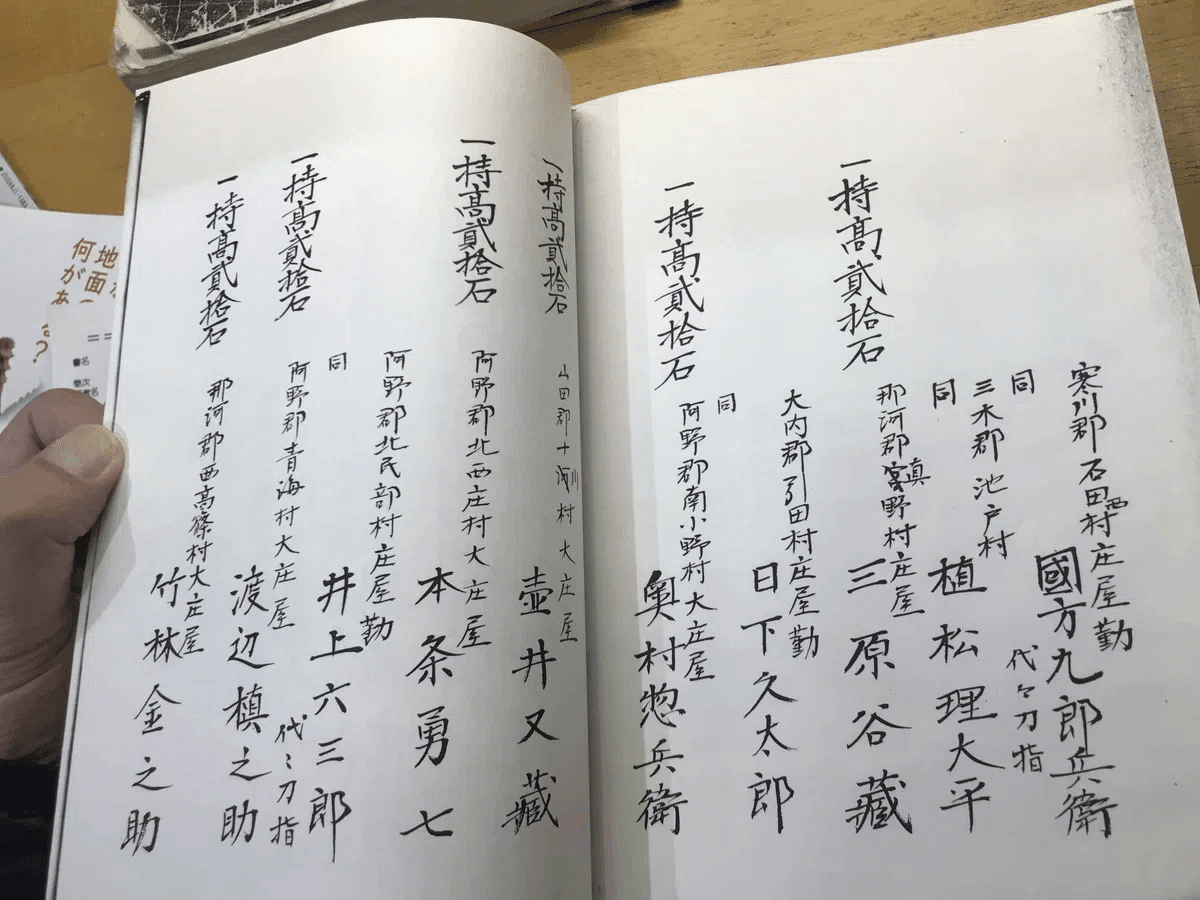 寒川郡石田西村庄屋勤
國方九郎兵衛
同
代々刀指
三木郡池戸村
植松理大平
同
一持髙貳拾石
那河郡真野村庄屋
三原谷藏
大内郡引田村庄屋勤
日下久太郎
同
一持髙貳拾石
阿野郡南小野村大庄屋
奥村惣兵衛
一持髙貳拾石
山田郡十河村大庄屋
壺井又藏
一持髙貳拾石
阿野郡北西庄村大庄屋
本条勇七
阿野郡北民部村庄屋勤
井上六三郎
同
代々刀指
一持髙貳拾石
阿野郡青海村大庄屋
渡辺槙之助
一持髙貳拾石
那河郡西高篠村大庄屋
竹林金之助
地面
何が